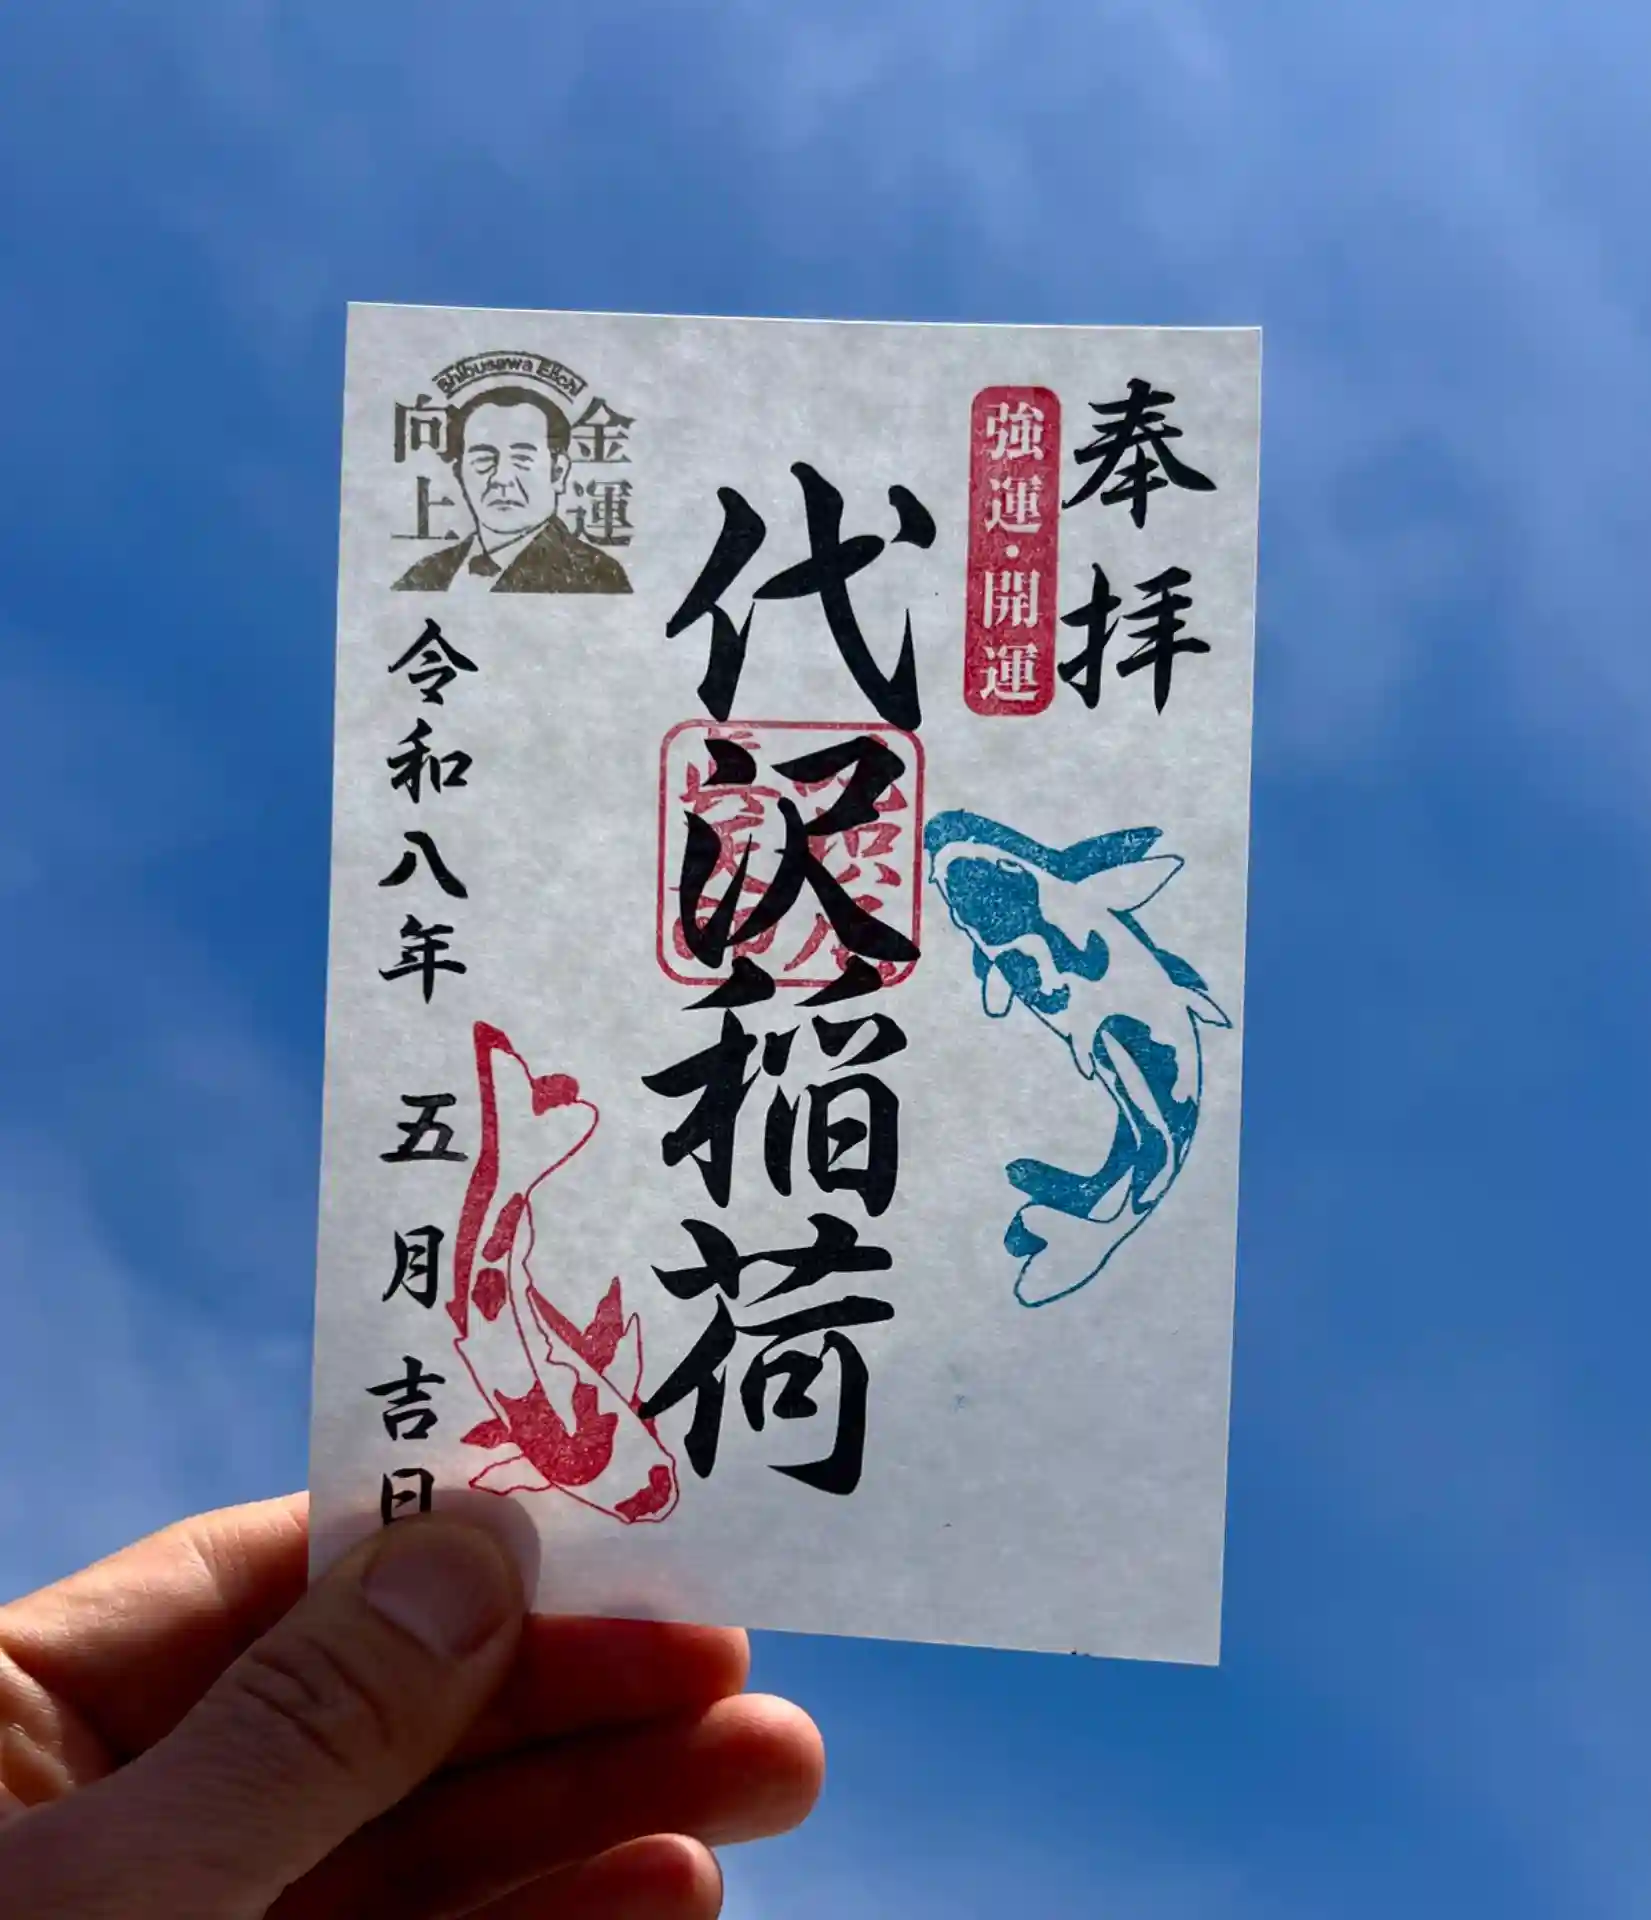 奉拝
強運・開運
代沢稲荷
Shibusawa Eiichi
金運
向上
令和八年 五月吉日